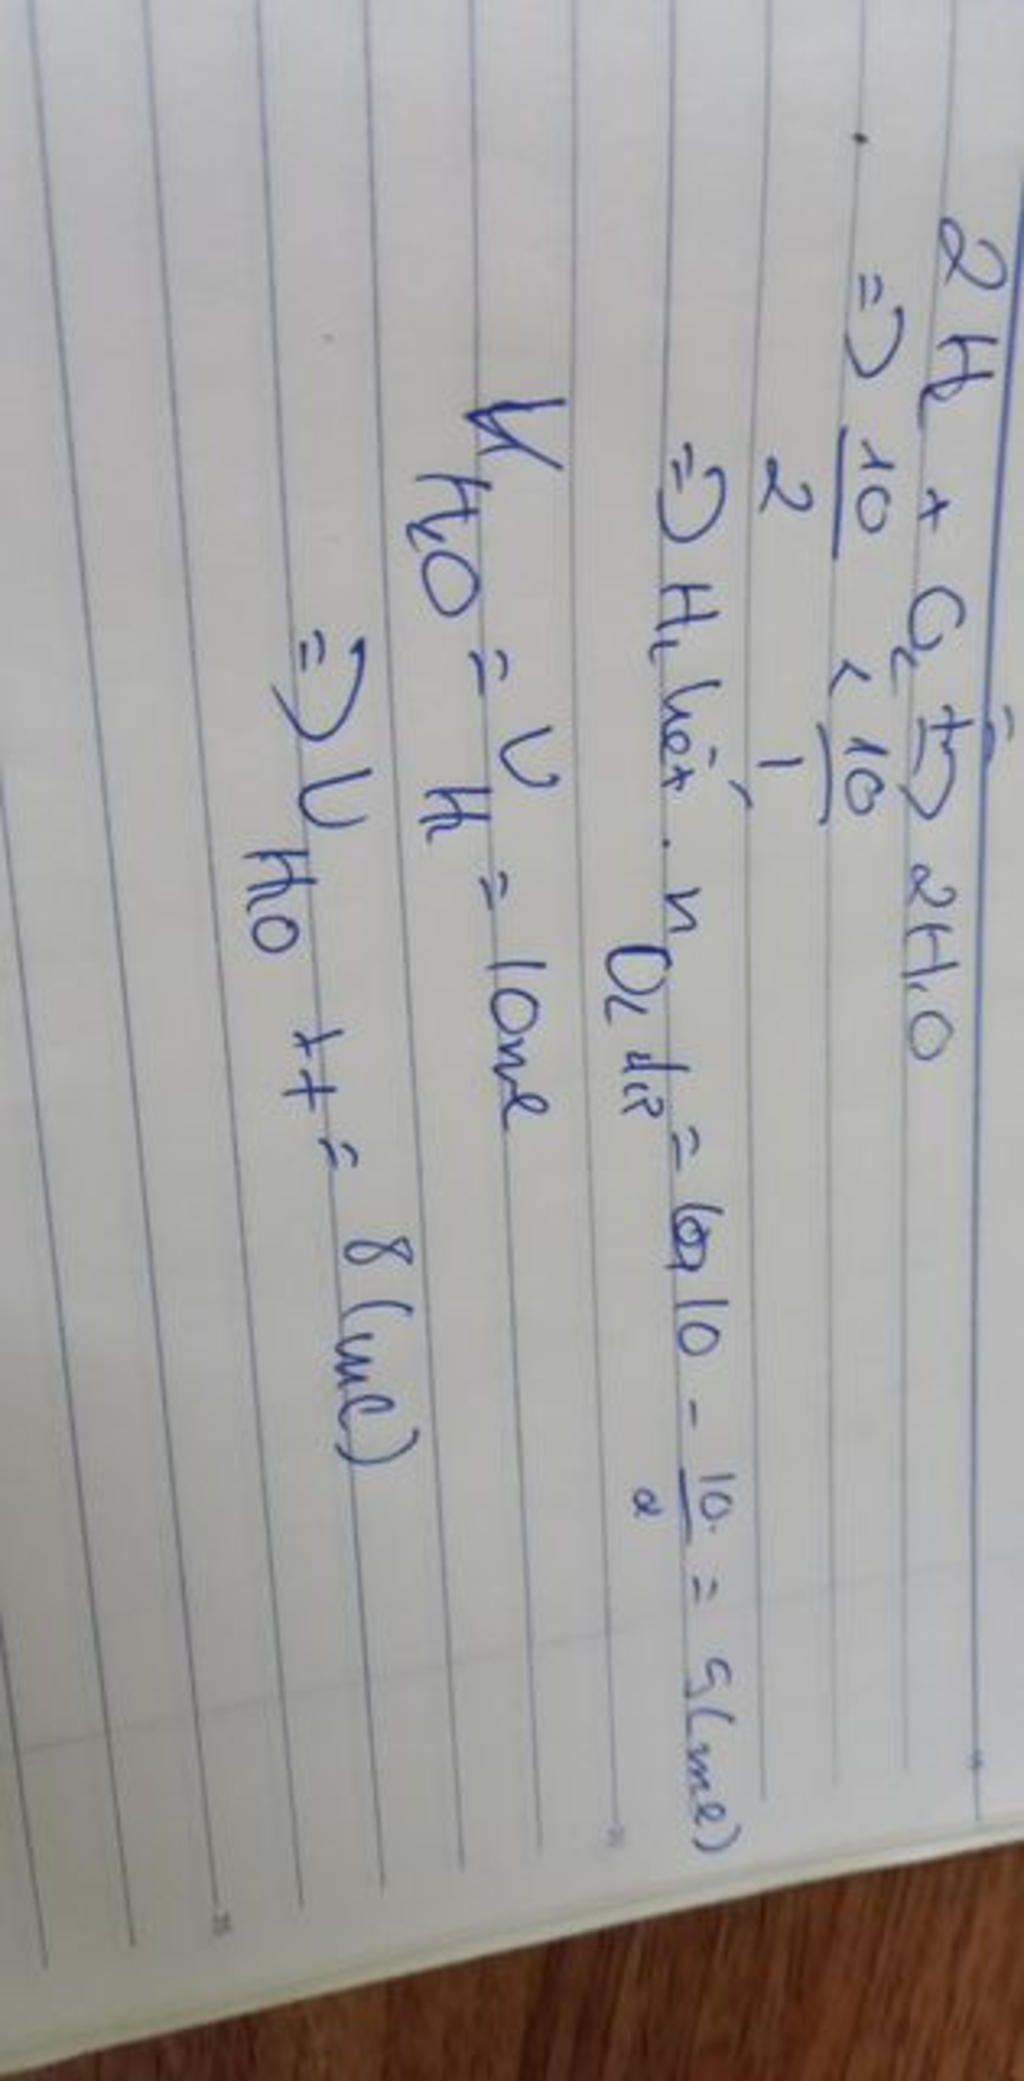 2H₂ + O₂ t°→ 2H₂O
=> 10/2 < 10/1
=> H₂ hết . n O₂ dư = 10 - 10/2 = 5 (mol)
V H₂O = V H₂ = 10 ml
=> V H₂O tt = 8 (ml)